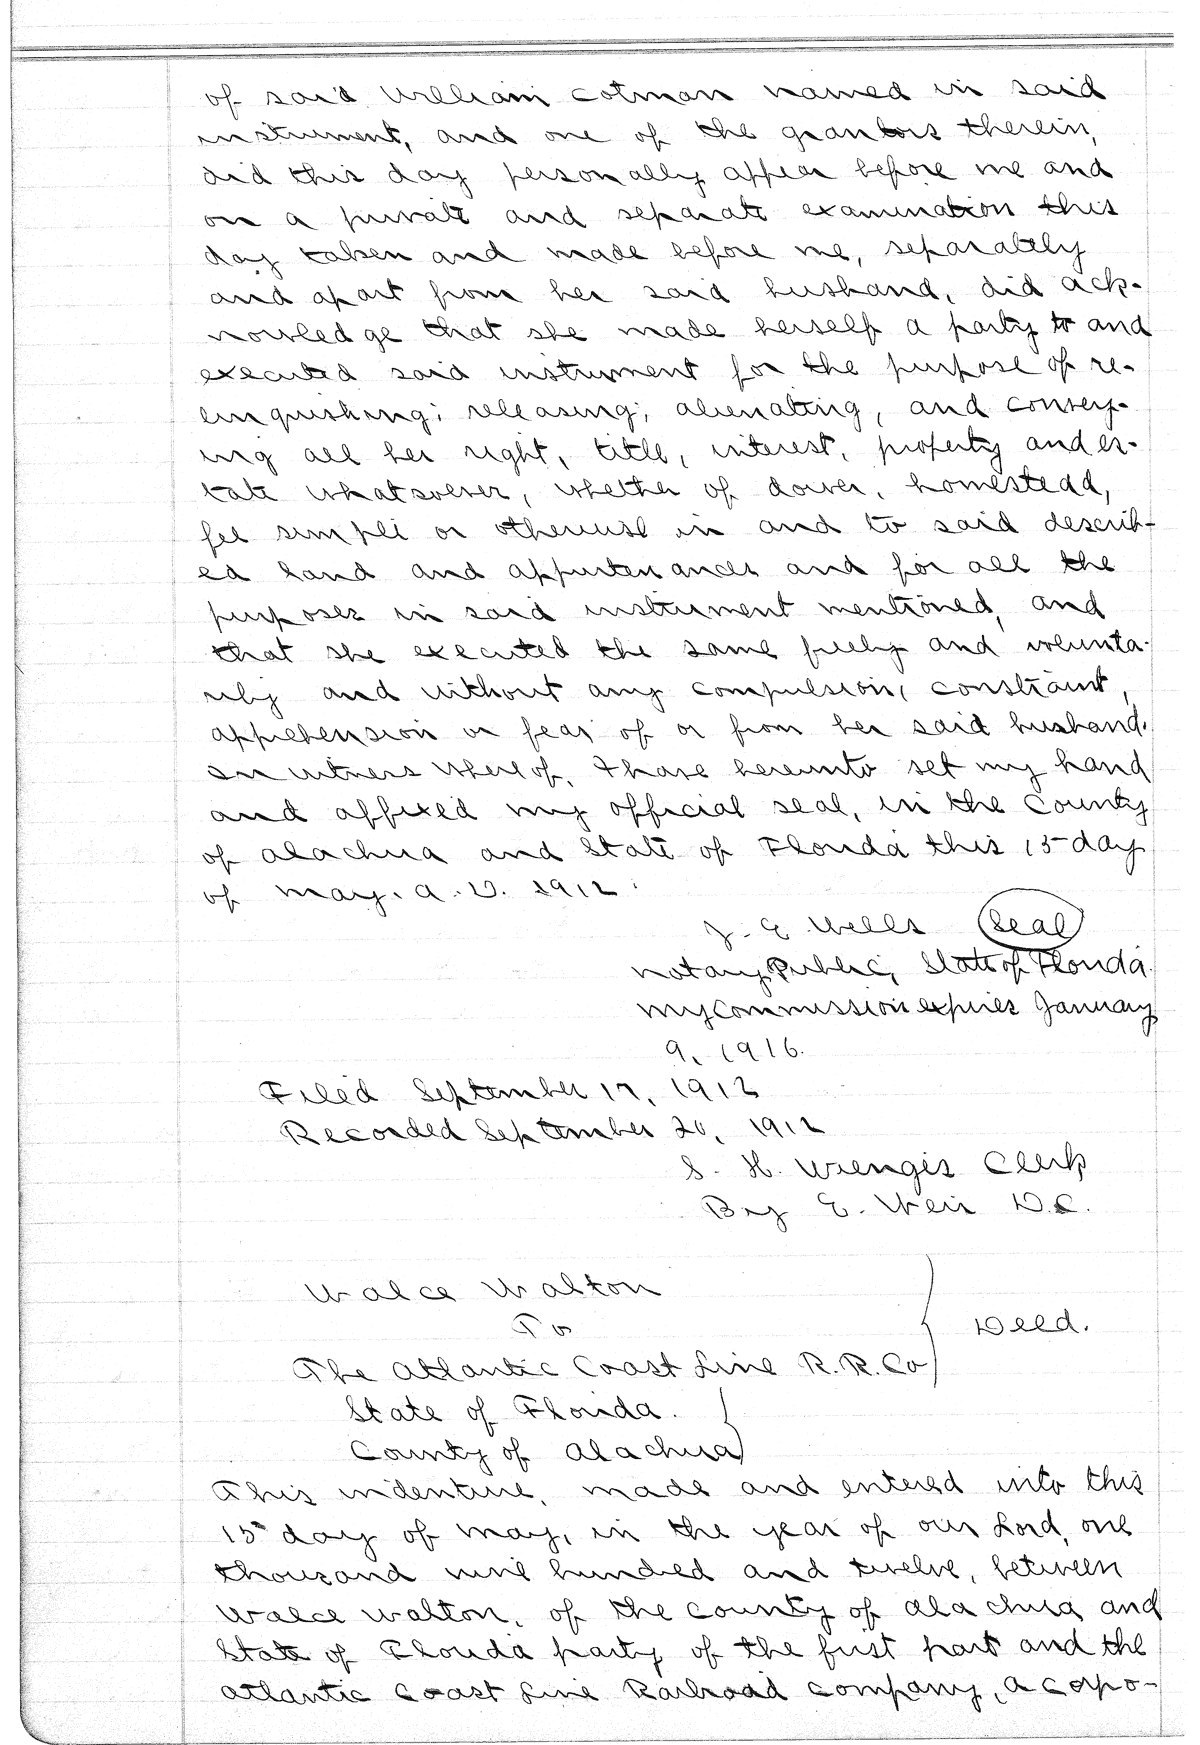 of said William Cotman named in said
instrument, and one of the grantors therein,
did this day personally appear before me and
on a private and separate examination this
day taken and made before me, separately
and apart from her said husband, did ack-
nowledge that she made herself a party to and
executed said instrument for the purpose of re-
linquishing; releasing; alienating, and convey-
ing all her right, title, interest, property and es-
tate whatsoever, whether of dower, homestead,
fee simple or otherwise in and to said describ-
ed land and appurtenances and for all the
purposes in said instrument mentioned, and
that she executed the same freely and volunta-
rily and without any compulsion, constraint,
apprehension or fear of or from her said husband.
In witness whereof, I have hereunto set my hand
and affixed my official seal, in the County
of Alachua and State of Florida this 15 day
of May. A.D. 1912.
J. E. Wells Seal
Notary Public, State of Florida.
My commission expires January
9, 1916.
Filed September 17, 1912
Recorded September 20, 1912
S. H. Wienges Clerk
By E. Weir D.C.
Walce Walton
To
Deed.
The Atlantic Coast Line R.R. Co
State of Florida.
County of Alachua
This indenture, made and entered into this
15 day of May, in the year of our Lord, one
thousand nine hundred and twelve, between
Walce Walton, of the county of Alachua and
State of Florida party of the first part and the
Atlantic Coast Line Railroad Company, a corpo-